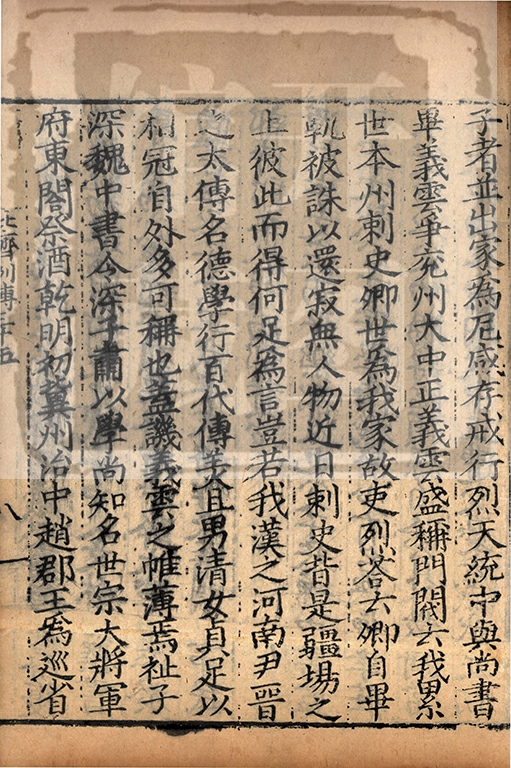 子者並出家爲尼咸存戒行烈天統中與尚書
畢義雲爭兖州大中正義雲盛稱門閥云我累
世本州刺史卿世爲我家故吏烈荅云卿自畢
軌被誅以還寂無人物近日刺史皆是疆場之
上彼此而得何足爲言豈若我漢之河南尹晉
之太傅名德學行百代傳美且男清女貞足以
相冠自外多可稱也蓋譏義雲之帷薄焉祉子
深魏中書令深子肅以學尚知名世宗大將軍
府東閤祭酒乾明初冀州治中趙郡王爲巡省
北齊列傳三十五
八